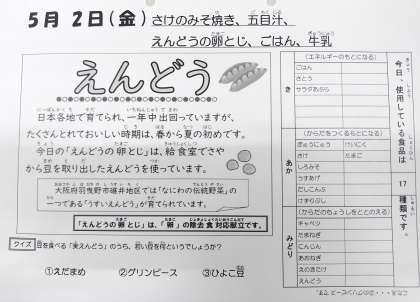 5月 2日(金) さけのみそ焼き、五目汁、
えんどうの卵とじ、ごはん、牛乳
えんどう
日本各地で育てられ、一年中出回っていますが、
たくさんとれておいしい時期は、春から夏の初めです。
今日の「えんどうの卵とじ」は、給食室でさや
から豆を取り出したえんどうを使っています。
大阪府羽曳野市碓井地区では「なにわの伝統野菜」の
一つである「うすいえんどう」が育てられています。
「えんどうの卵とじ」は、「卵」の除去食対応献立です。
クイズ 豆を食べる「実えんどう」のうち、若い豆を何というでしょうか?
①えだまめ ②グリンピース ③ひよこ豆
今日、使用している食品は 17 種類です。
き
(エネルギーのもとになる)
ごはん
さとう
サラダあぶら
あか
(からだをつくるもとになる)
ぎゅうにゅう けいにく
さけ たまご
しろみそ
うすあげ
だしこんぶ
けずりぶし
みどり
(からだのちょうしをととのえる)
キャベツ
たまねぎ
にんじん
あおねぎ
えのきだけ
えんどう